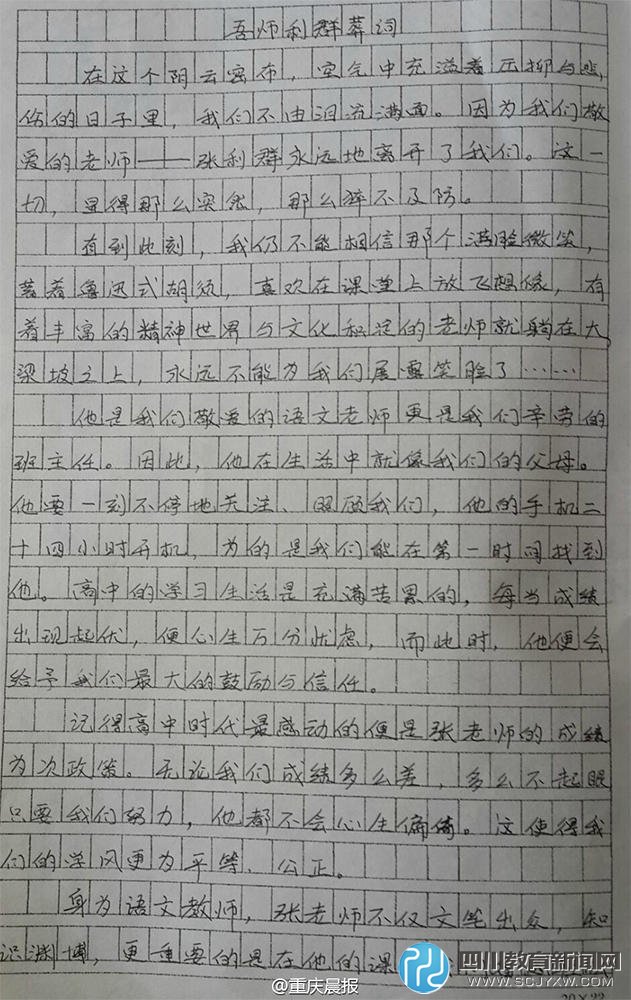 吾师利群葬词
在这个阴云密布，空气中充溢着压抑与悲
伤的日子里，我们不由泪流满面。因为我们敬
爱的老师——张利群永远地离开了我们。这一
切，显得那么突然，那么猝不及防。
直到此刻，我仍不能相信那个满脸微笑，
蓄着鲁迅式胡须，喜欢在课堂上放飞想像，有
着丰富的精神世界与文化积淀的老师就躺在大
梁坡之上，永远不能为我们展露笑脸了……
他是我们敬爱的语文老师更是我们辛劳的
班主任。因此，他在生活中就像我们的父母。
他要一刻不停地关注、照顾我们，他的手机二
十四小时开机，为的是我们能在第一时间找到
他。高中的学习生活是充满苦累的，每当成绩
出现起伏，便心生万分忧虑，而此时，他便会
给予我们最大的鼓励与信任。
记得高中时代最感动的便是张老师的成绩
为次政策。无论我们成绩多么差，多么不起眼
只要我们努力，他都不会心生偏倚。这使得我
们的学风更为平等、公正。
身为语文教师，张老师不仅文笔出众，知
识渊博，更重要的是在他的课
四川教育新闻网
WWW.SCJYXW.COM
@重庆晨报
20×22